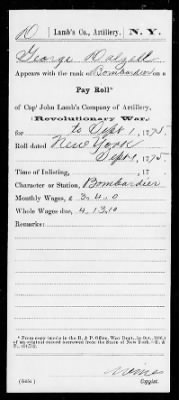 D | Lamb's Co., Artillery. | N. Y.
George Dalzell
Appears with the rank of Bombardier on a
Pay Roll*
of Cap! John Lamb's Company of Artillery,
Revolutionary War,
for to Sept 1, 1775.
Roll dated New York
Sept 1, 1775.
Time of Inlisting, , 17
Character or Station, Bombardier
Monthly Wages, £ 3.4.0
Whole Wages due, 4.13.10
Remarks:
* From copy (made in the R. & P. Office, War Dept., in Oct.,
of an original record borrowed from the State of New York.
(545i) Copyist.